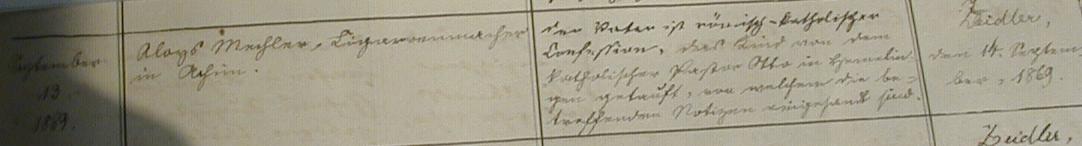 September
13.
1869.
Aloys Mechler, Cigarrenmacher
in Achim.
Der Vater ist römisch-katholischer
Confession, das Kind von dem
katholischen Pastor Otto in Hemelin-
gen getauft, von welchem die be-
treffenden Notizen eingesandt sind.
Zeidler,
den 14. Septem-
ber, 1869.
Zeidler,